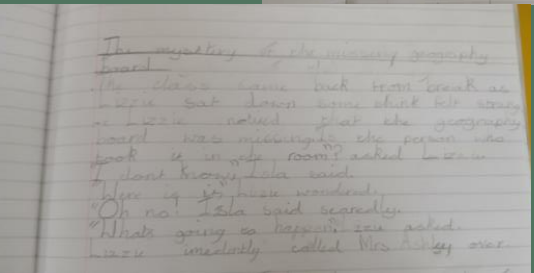 The mystery of the missing geography
board
The class came back from break as
Lizzie sat down some felt strong
Lizzie noticed that the geography
board was missing is the person who
took it in the room?" asked Lizzie
I dont know," Isla said.
Were is it" wondered.
"Oh no! Isla said scaredly.
"Whats going to happen" asked.
Lizzie called Mrs Ashley over.